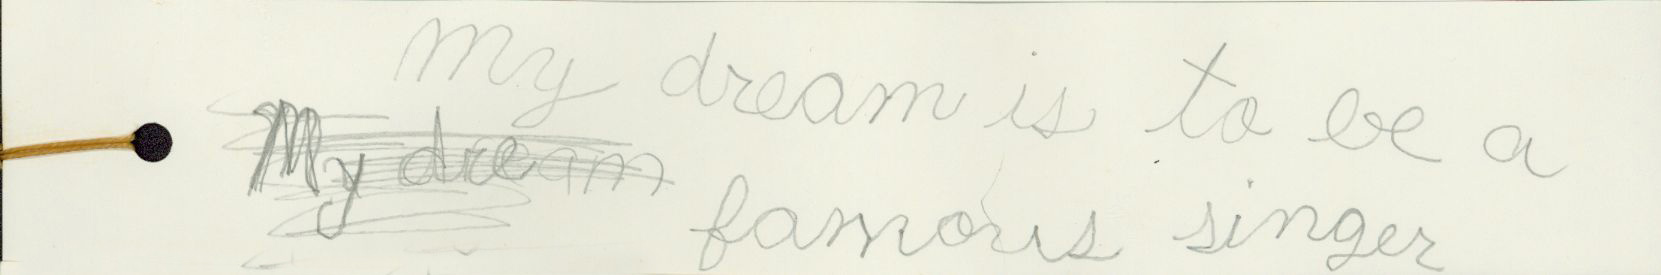 My dream is to be a
My dream
famous singer